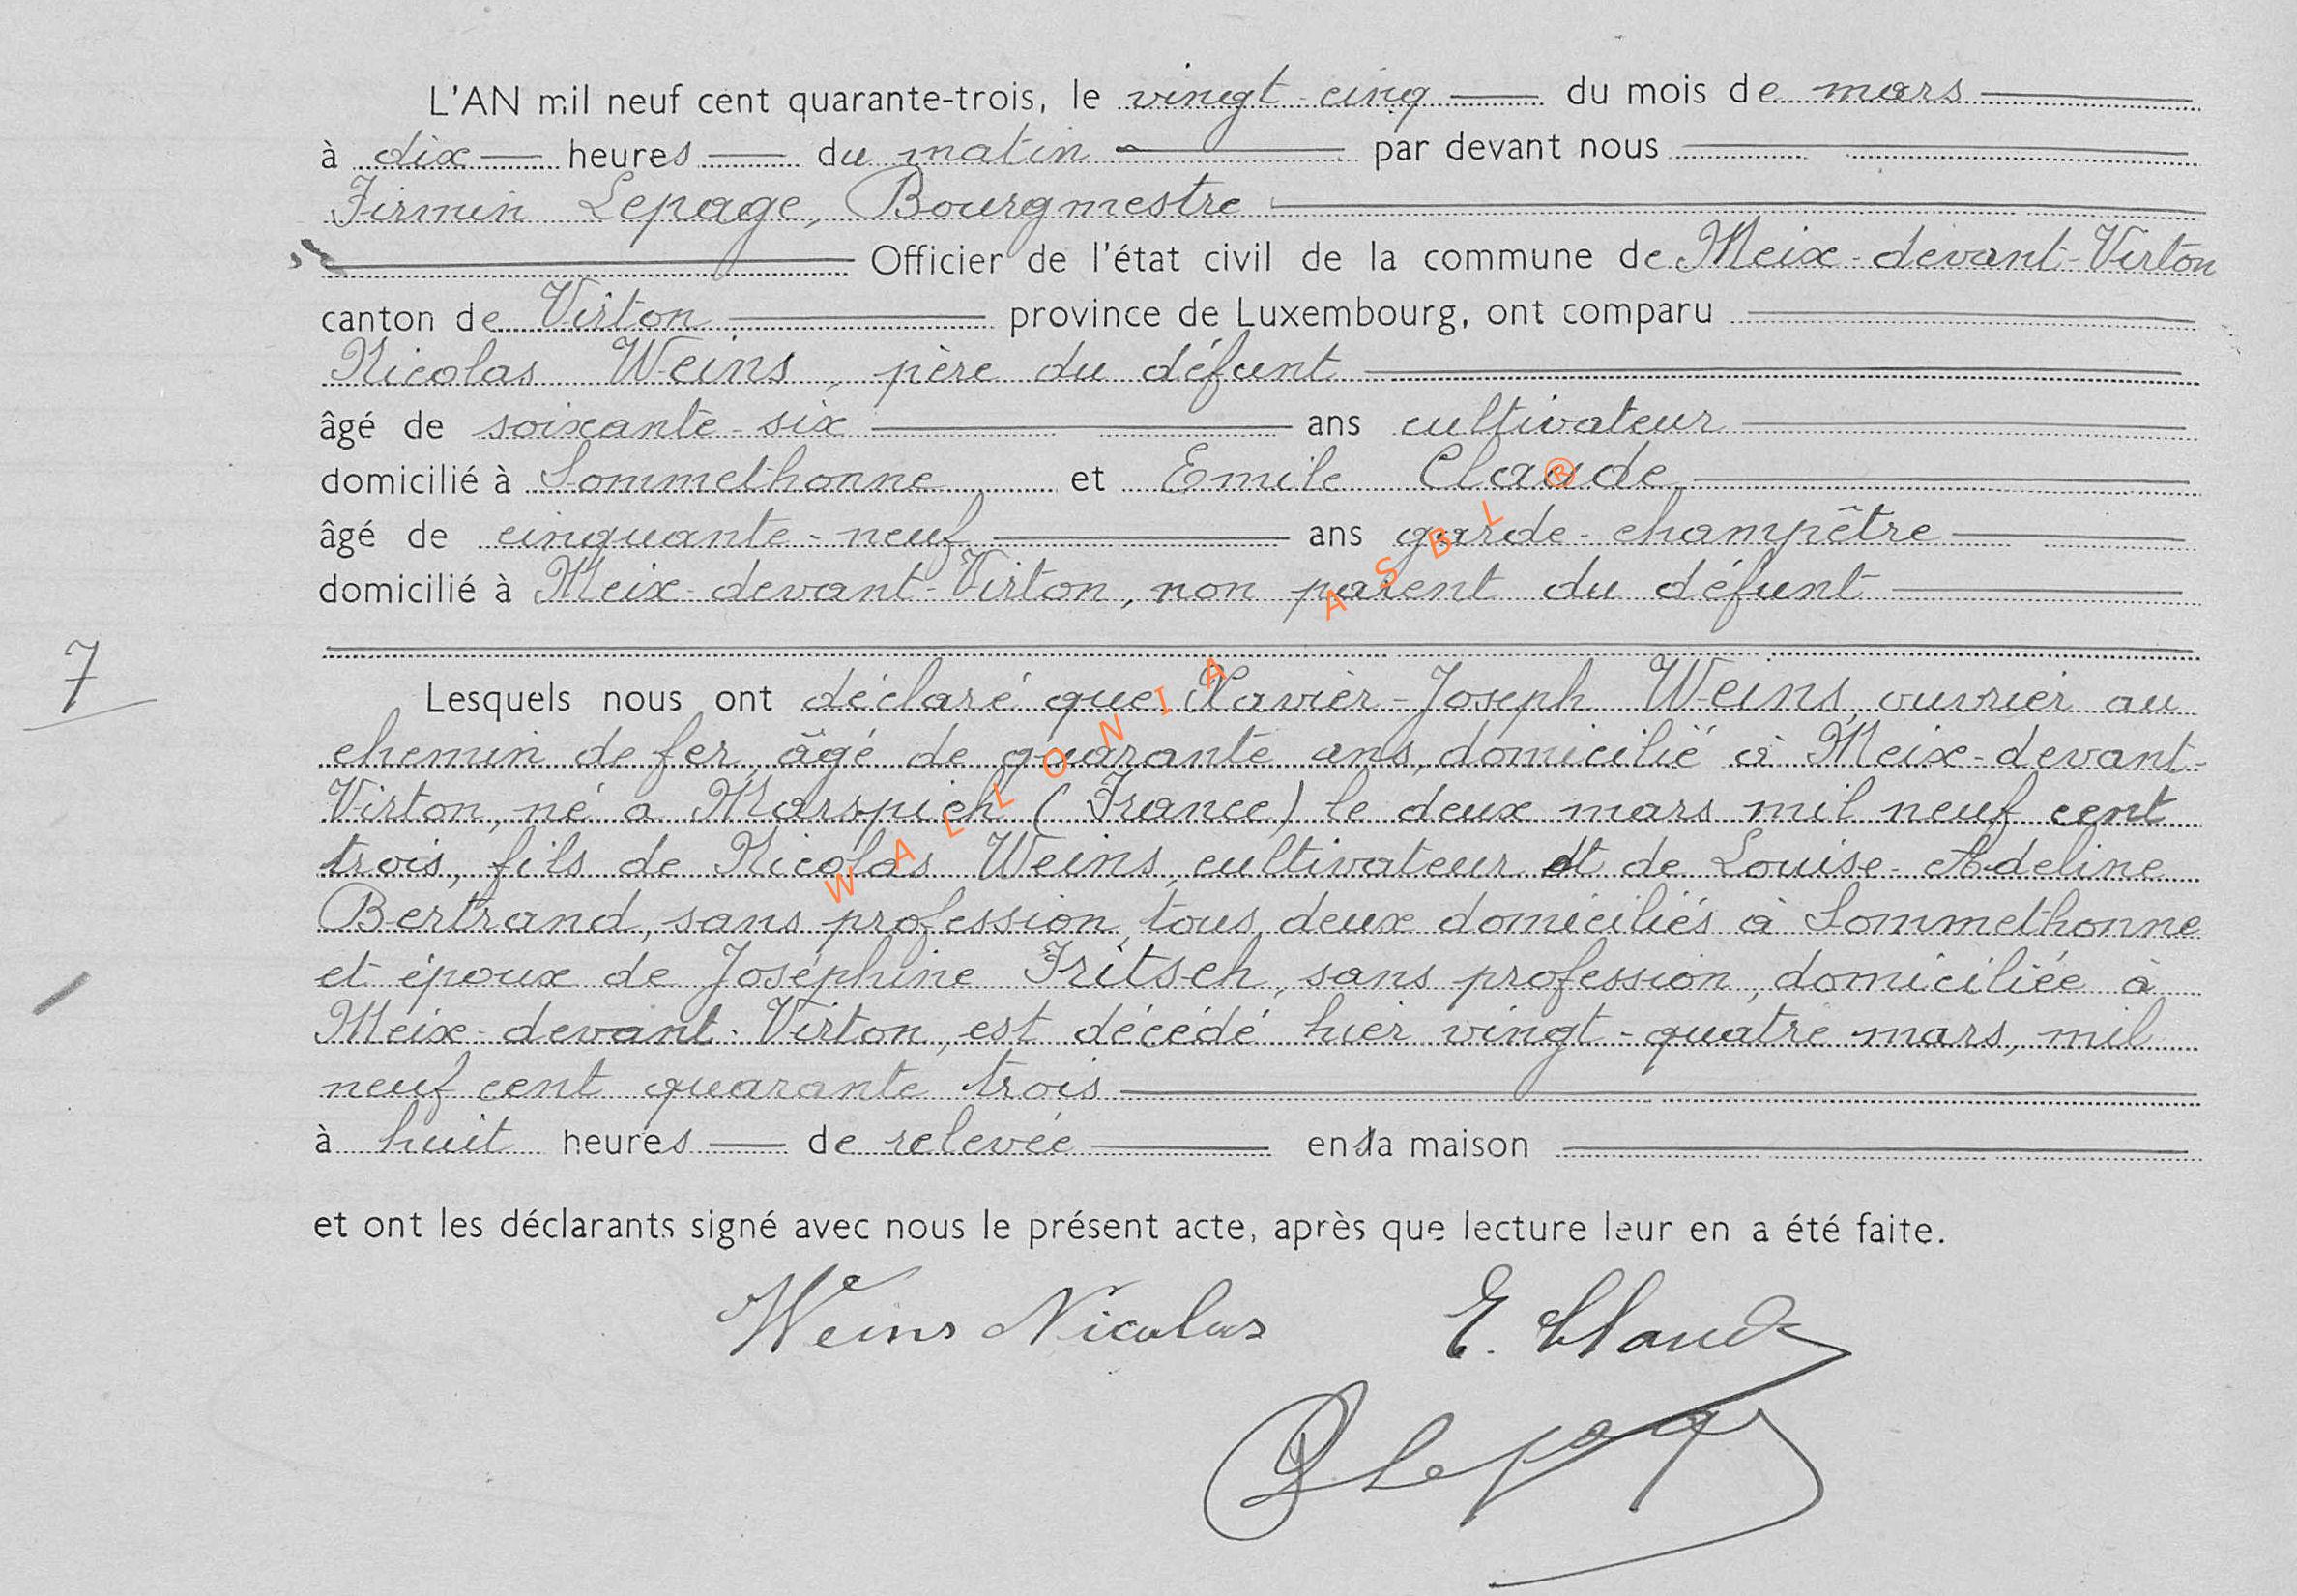 L'AN mil neuf cent quarante-trois, le vingt-cinq du mois de mars
à dix heures du matin par devant nous
Firmin Lepage, Bourgmestre
Officier de l'état civil de la commune de Meix-devant-Virton
canton de Virton province de Luxembourg, ont comparu
Nicolas Weins, père du défunt
âgé de soixante-six ans cultivateur
domicilié à Sommethonne et Emile Claude
âgé de cinquante-neuf ans garde-champêtre
domicilié à Meix-devant-Virton, non parent du défunt
7
Lesquels nous ont déclaré que Xavier-Joseph Weins, ouvrier au
chemin de fer, âgé de quarante ans, domicilié à Meix-devant-
Virton, né a Marspich (France) le deux mars mil neuf cent
trois, fils de Nicolas Weins, cultivateur et de Louise-Adeline
Bertrand, sans profession, tous deux domiciliés à Sommethonne
et époux de Joséphine Fritsch, sans profession, domiciliée à
Meix-devant-Virton, est décédé hier vingt-quatre mars, mil
neuf cent quarante trois
à huit heures de relevée en sa maison
et ont les déclarants signé avec nous le présent acte, après que lecture leur en a été faite.
Weins Nicolas E. Claude
Lepage
WALLONIA ASBL ®